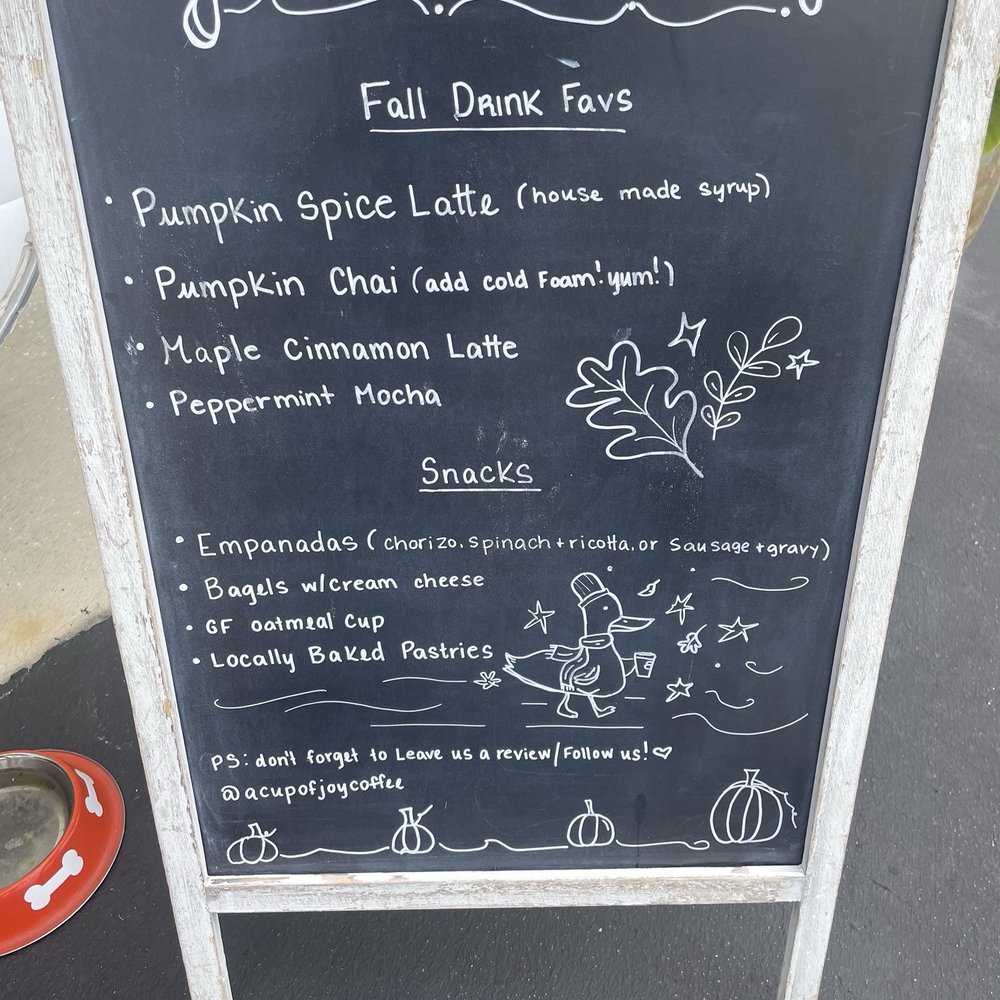 Fall Drink Favs
• Pumpkin Spice Latte (house made syrup)
• Pumpkin Chai (add cold foam! yum!)
• Maple Cinnamon Latte
• Peppermint Mocha
Snacks
• Empanadas (chorizo, spinach + ricotta, or sausage + gravy)
• Bagels w/cream cheese
• GF oatmeal cup
• Locally Baked Pastries
PS: don't forget to Leave us a review/Follow us! ♡
@acupofjoycoffee